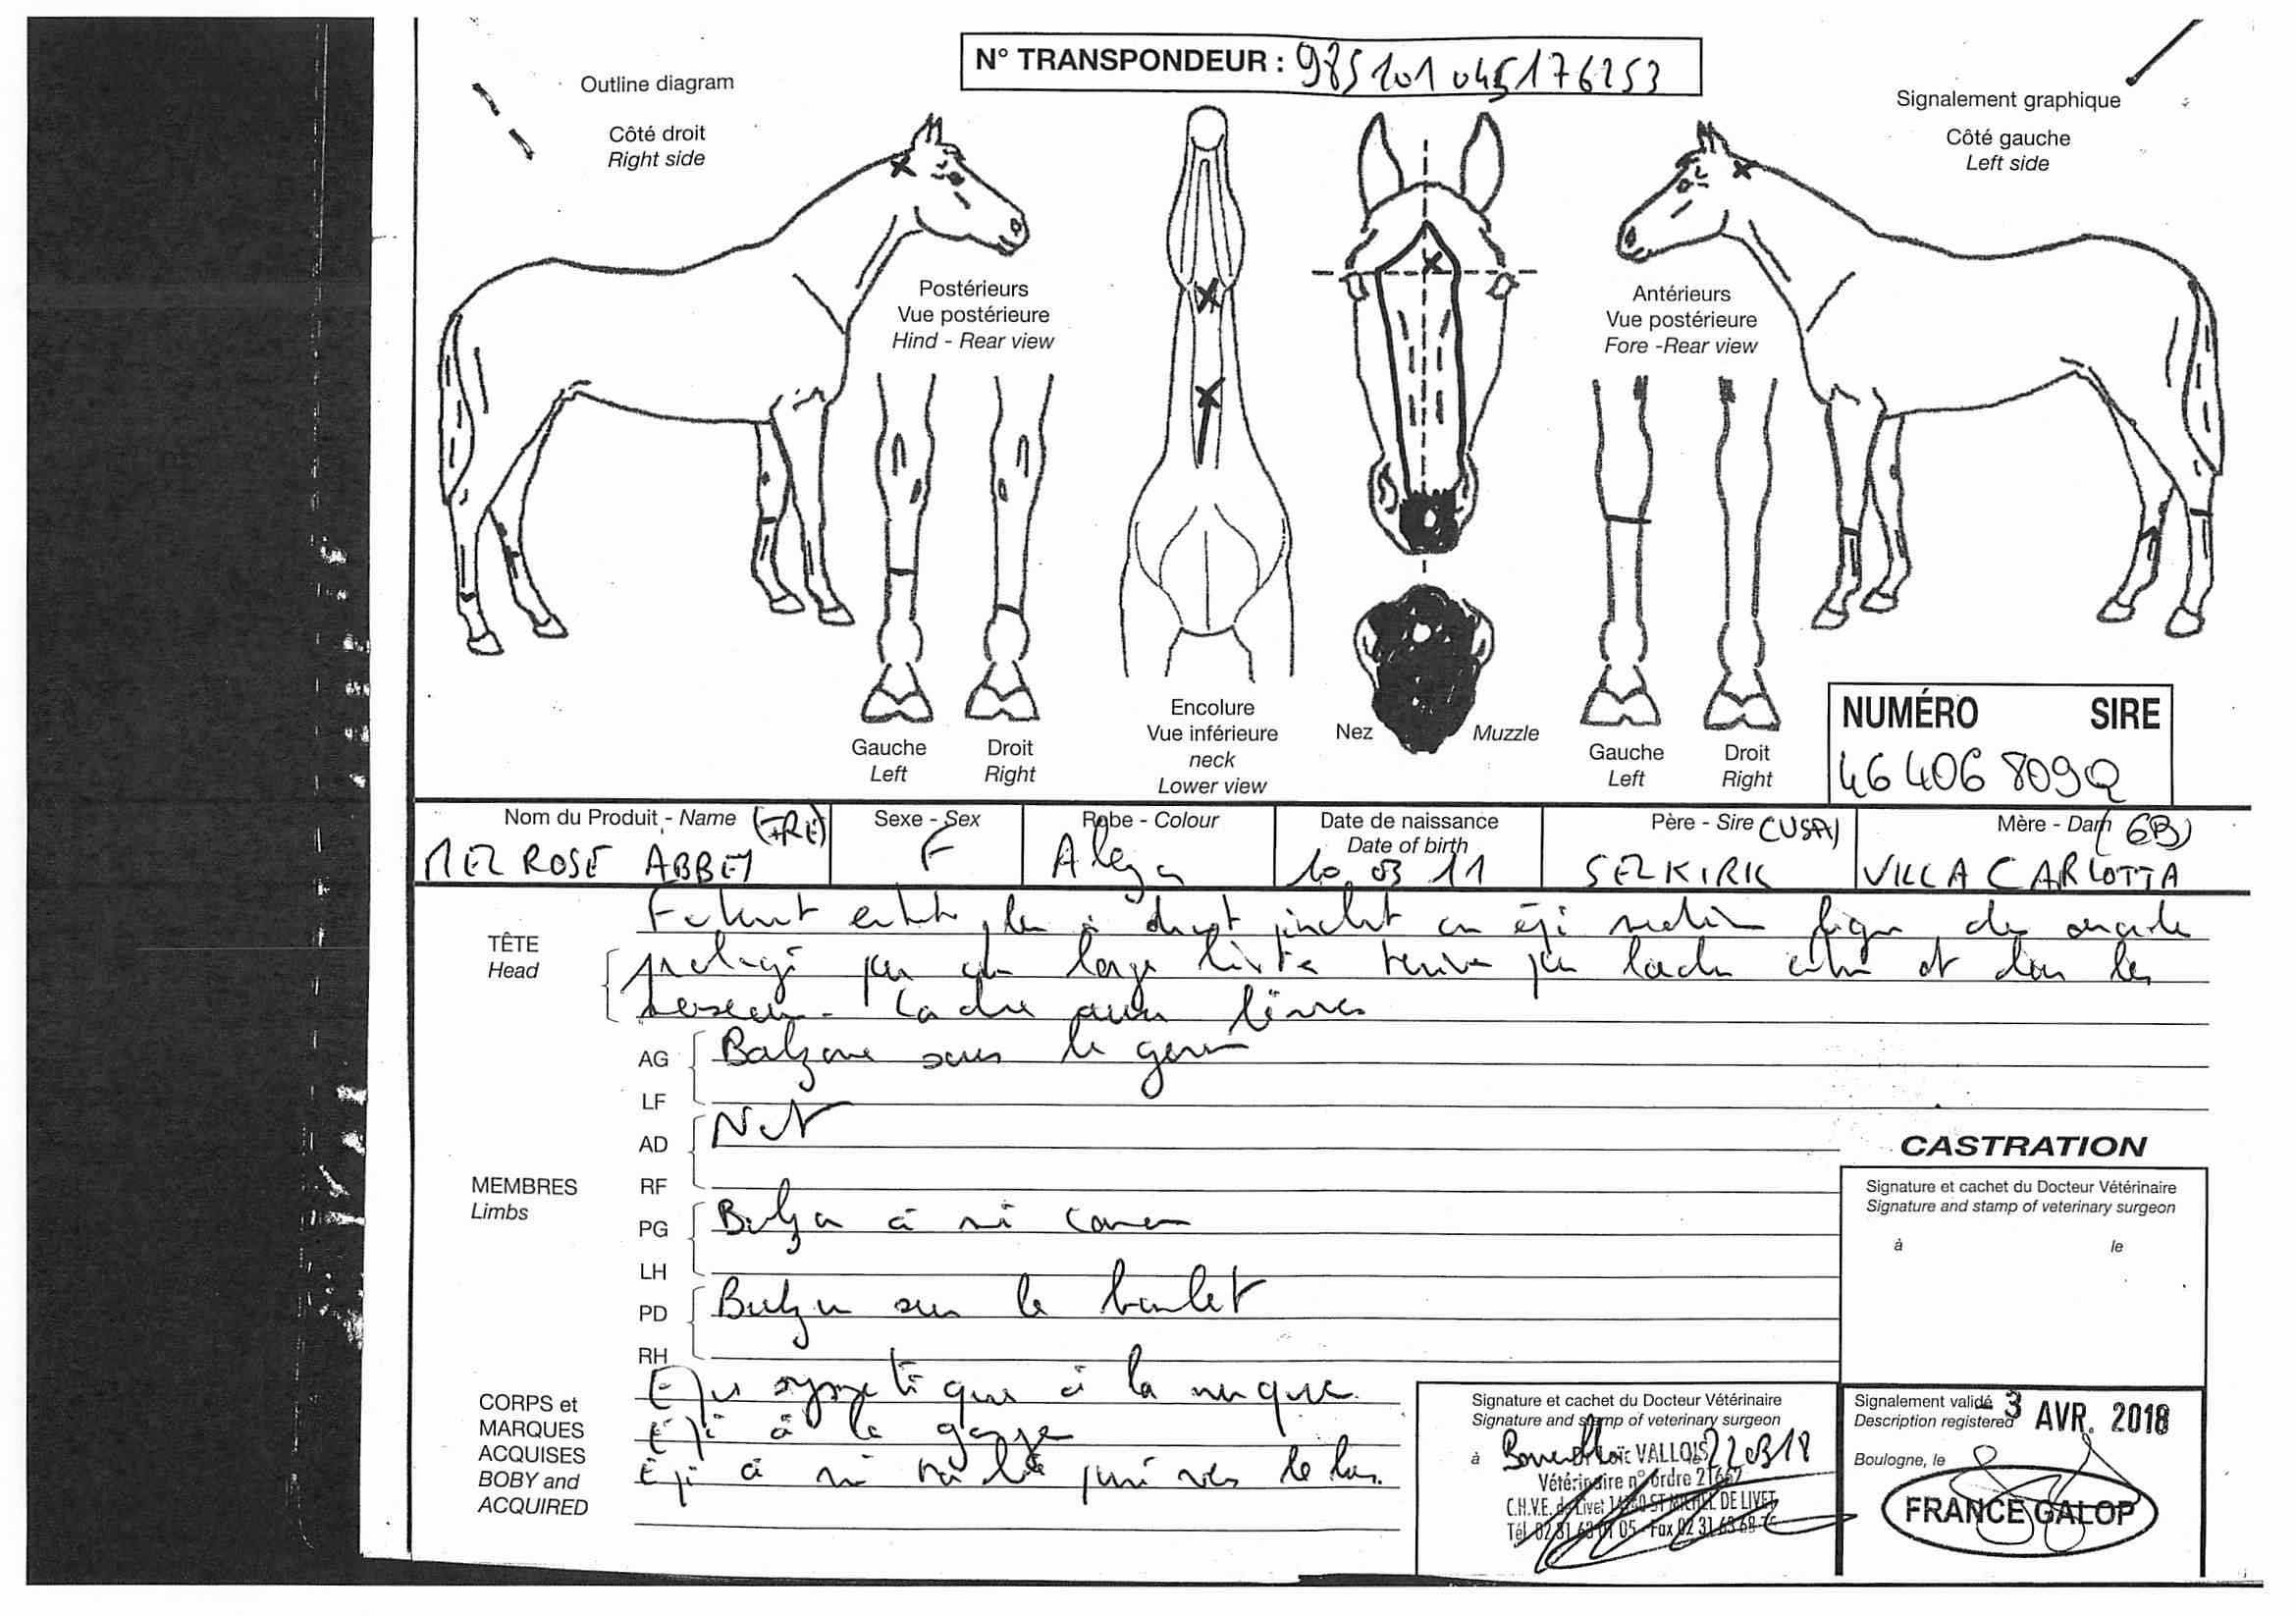 N° TRANSPONDEUR : 985101045176253
Outline diagram
Côté droit
Right side
Signalement graphique
Côté gauche
Left side
Postérieurs
Vue postérieure
Hind - Rear view
Antérieurs
Vue postérieure
Fore -Rear view
Gauche
Left
Droit
Right
Encolure
Vue inférieure
neck
Lower view
Nez
Muzzle
Gauche
Left
Droit
Right
NUMÉRO SIRE
46 406 809Q
Nom du Produit - Name (FRE)
MELROSE ABBEY
Sexe - Sex
F
Robe - Colour
Alezan
Date de naissance
Date of birth
10 03 11
Père - Sire (USA)
SELKIRK
Mère - Dam (GB)
VILLA CARLOTTA
TÊTE
Head
en épi médian ligne des
prolongé par large liste ladre et dans les
naseaux. Ladre aux lèvres
MEMBRES
Limbs
AG
LF
Balzane sous le genou
AD
RF
Nt
PG
LH
Balzane à mi canon
PD
RH
Balzane sur le boulet
CORPS et
MARQUES
ACQUISES
BOBY and
ACQUIRED
Epis symétriques à la nuque
Epi à la gorge
Epi à mi vers le bas.
CASTRATION
Signature et cachet du Docteur Vétérinaire
Signature and stamp of veterinary surgeon
à le
Signature et cachet du Docteur Vétérinaire
Signature and stamp of veterinary surgeon
à 22 03 18
Loïc VALLOIS
Vétérinaire n° ordre 21662
C.H.V.E. de Livet 14140 ST MICHEL DE LIVET
Tél. 02 31 63 01 05 - Fax 02 31 63 68 76
Signalement validé
Description registered
- 3 AVR. 2018
Boulogne, le
FRANCE GALOP